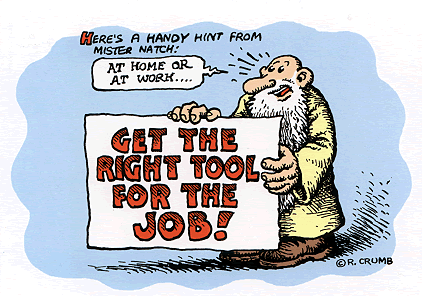 HERE'S A HANDY HINT FROM
MISTER NATCH:
AT HOME OR
AT WORK....
GET THE
RIGHT TOOL
FOR THE
JOB!
©R. CRUMB